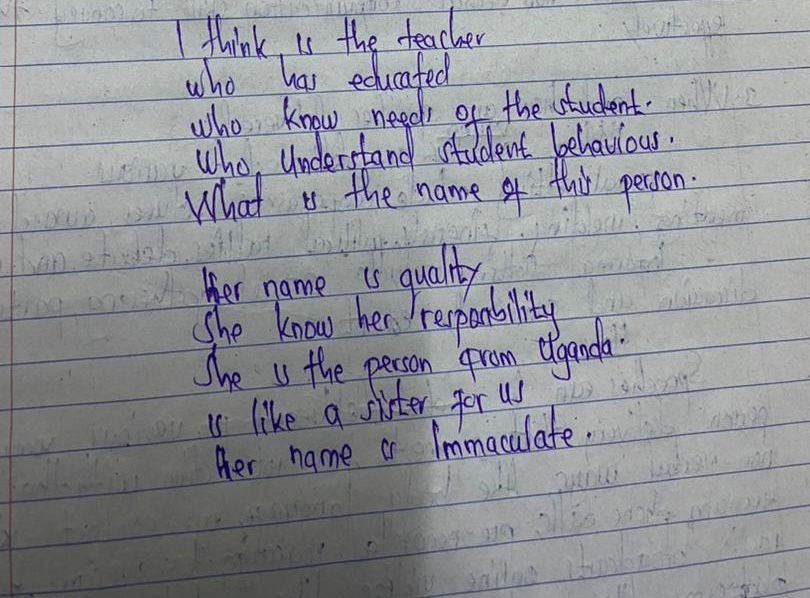 I think is the teacher
who has educated
who know needs of the student.
Who Understand student behavious.
What is the name of this person.
Her name is quality
She know her responbility
She is the person from Uganda.
is like a sister for us
Her name is Immaculate.